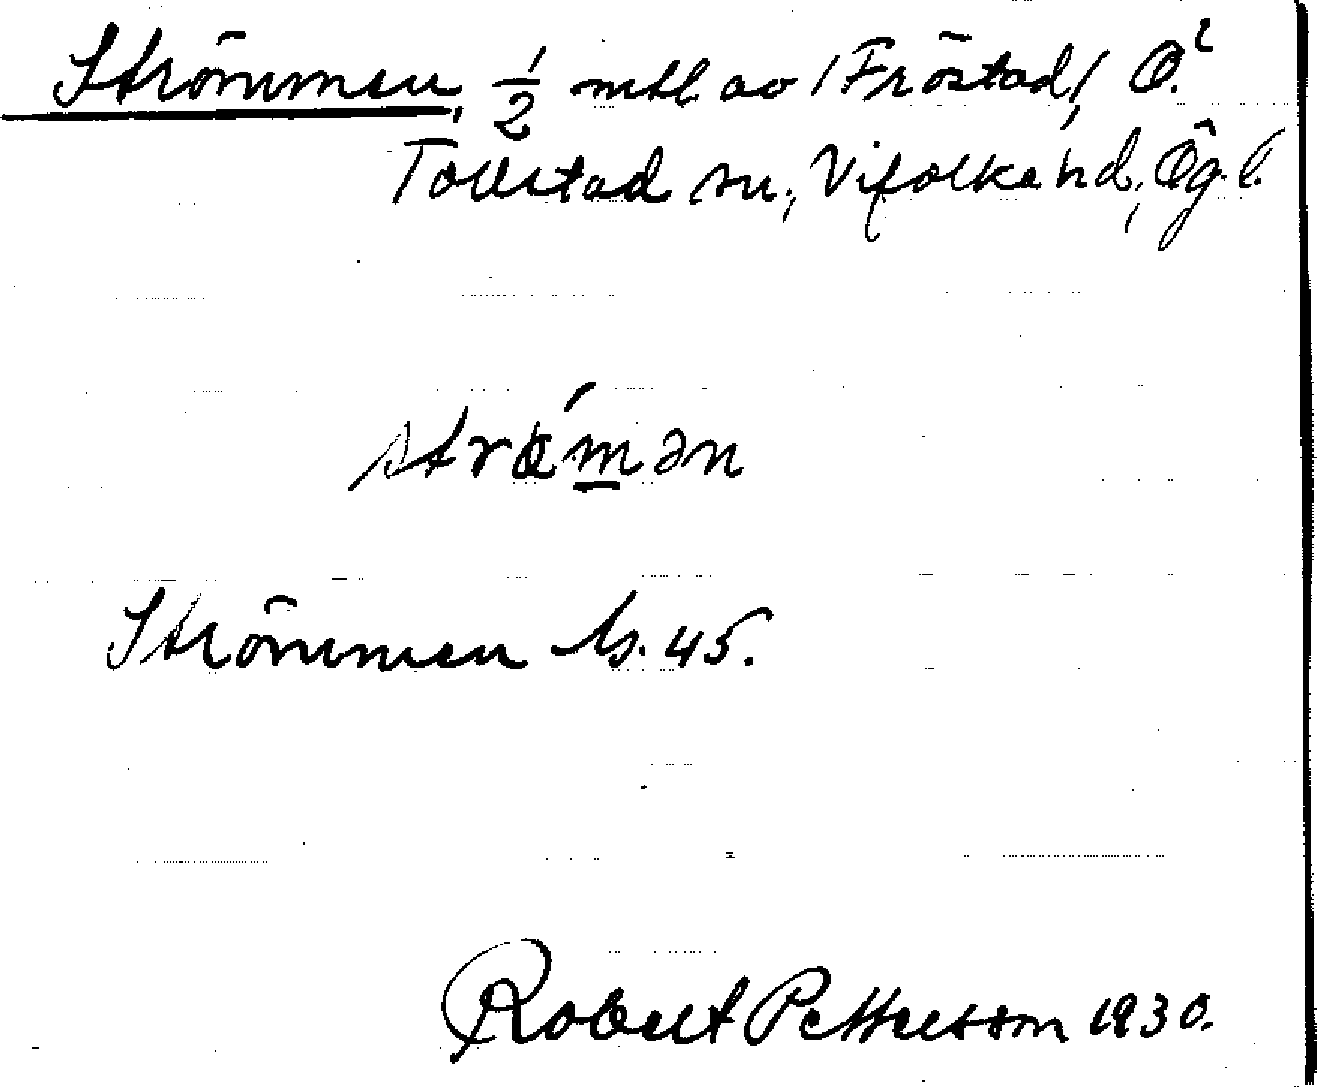 Strömmen, 1/2 mtl. av /Fröstad/, Ö.
Tollstad sn., Vifolka hd, Ög. l.
strǿmən
Strömmen Js. 45.
Robert Pettersson 1930.